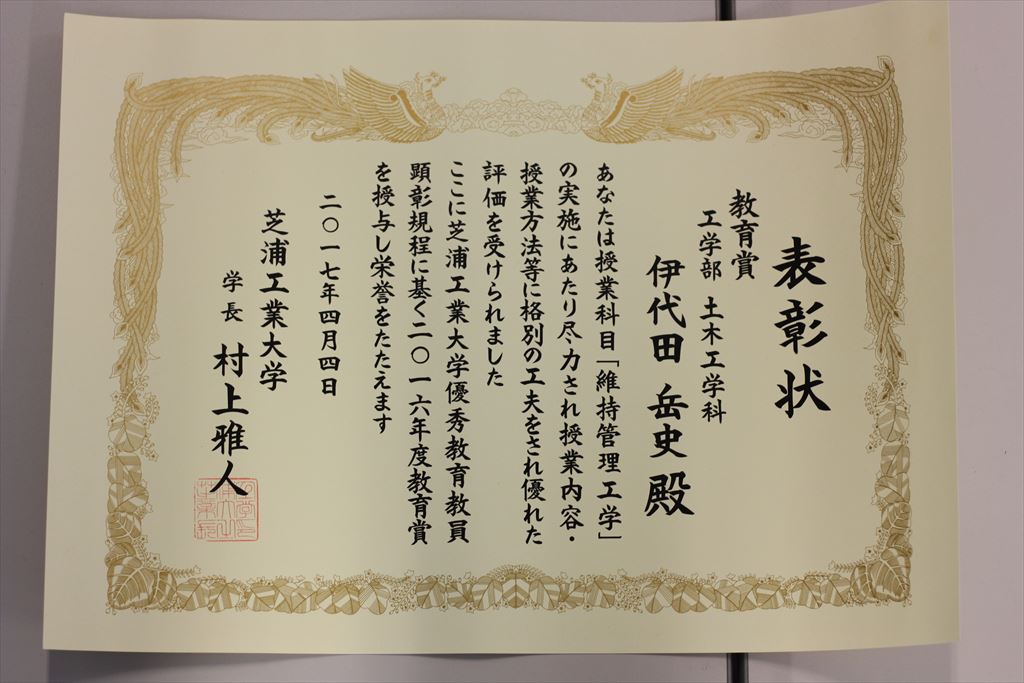 表彰状
教育賞
工学部 土木工学科
伊代田 岳史 殿
あなたは授業科目「維持管理工学」
の実施にあたり尽力され授業内容・
授業方法等に格別の工夫をされ優れた
評価を受けられました
ここに芝浦工業大学優秀教育教員
顕彰規程に基く二〇一六年度教育賞
を授与し栄誉をたたえます
二〇一七年四月四日
芝浦工業大学
学長 村上雅人